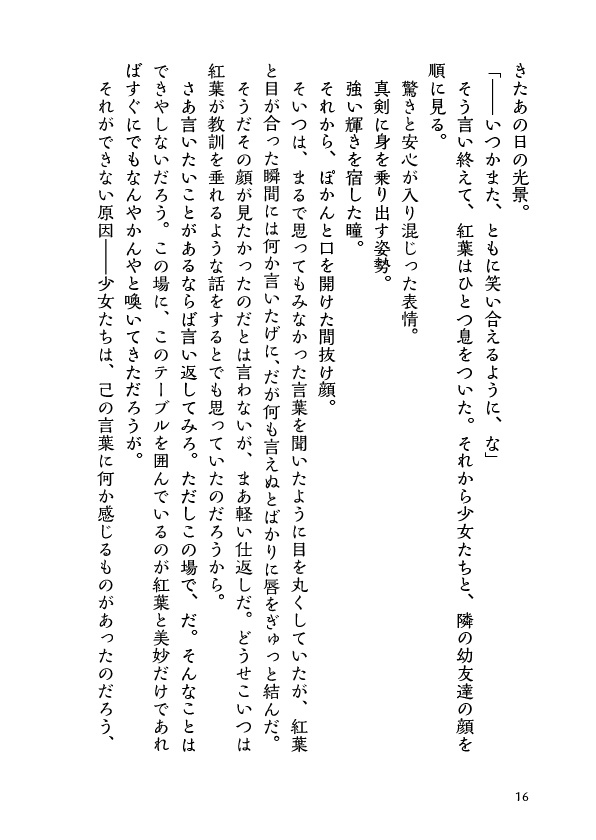 きたあの日の光景。
「――いつかまた、ともに笑い合えるように、な」
そう言い終えて、紅葉はひとつ息をついた。それから少女たちと、隣の幼友達の顔を
順に見る。
驚きと安心が入り混じった表情。
真剣に身を乗り出す姿勢。
強い輝きを宿した瞳。
それから、ぽかんと口を開けた間抜け顔。
そいつは、まるで思ってもみなかった言葉を聞いたように目を丸くしていたが、紅葉
と目が合った瞬間には何か言いたげに、だが何も言えぬとばかりに唇をぎゅっと結んだ。
そうだその顔が見たかったのだとは言わないが、まあ軽い仕返しだ。どうせこいつは
紅葉が教訓を垂れるような話をするとでも思っていたのだろうから。
さあ言いたいことがあるならば言い返してみろ。ただしこの場で、だ。そんなことは
できやしないだろう。この場に、このテーブルを囲んでいるのが紅葉と美妙だけであれ
ばすぐにでもなんやかんやと喚いてきただろうが。
それができない原因――少女たちは、己の言葉に何か感じるものがあったのだろう、
16